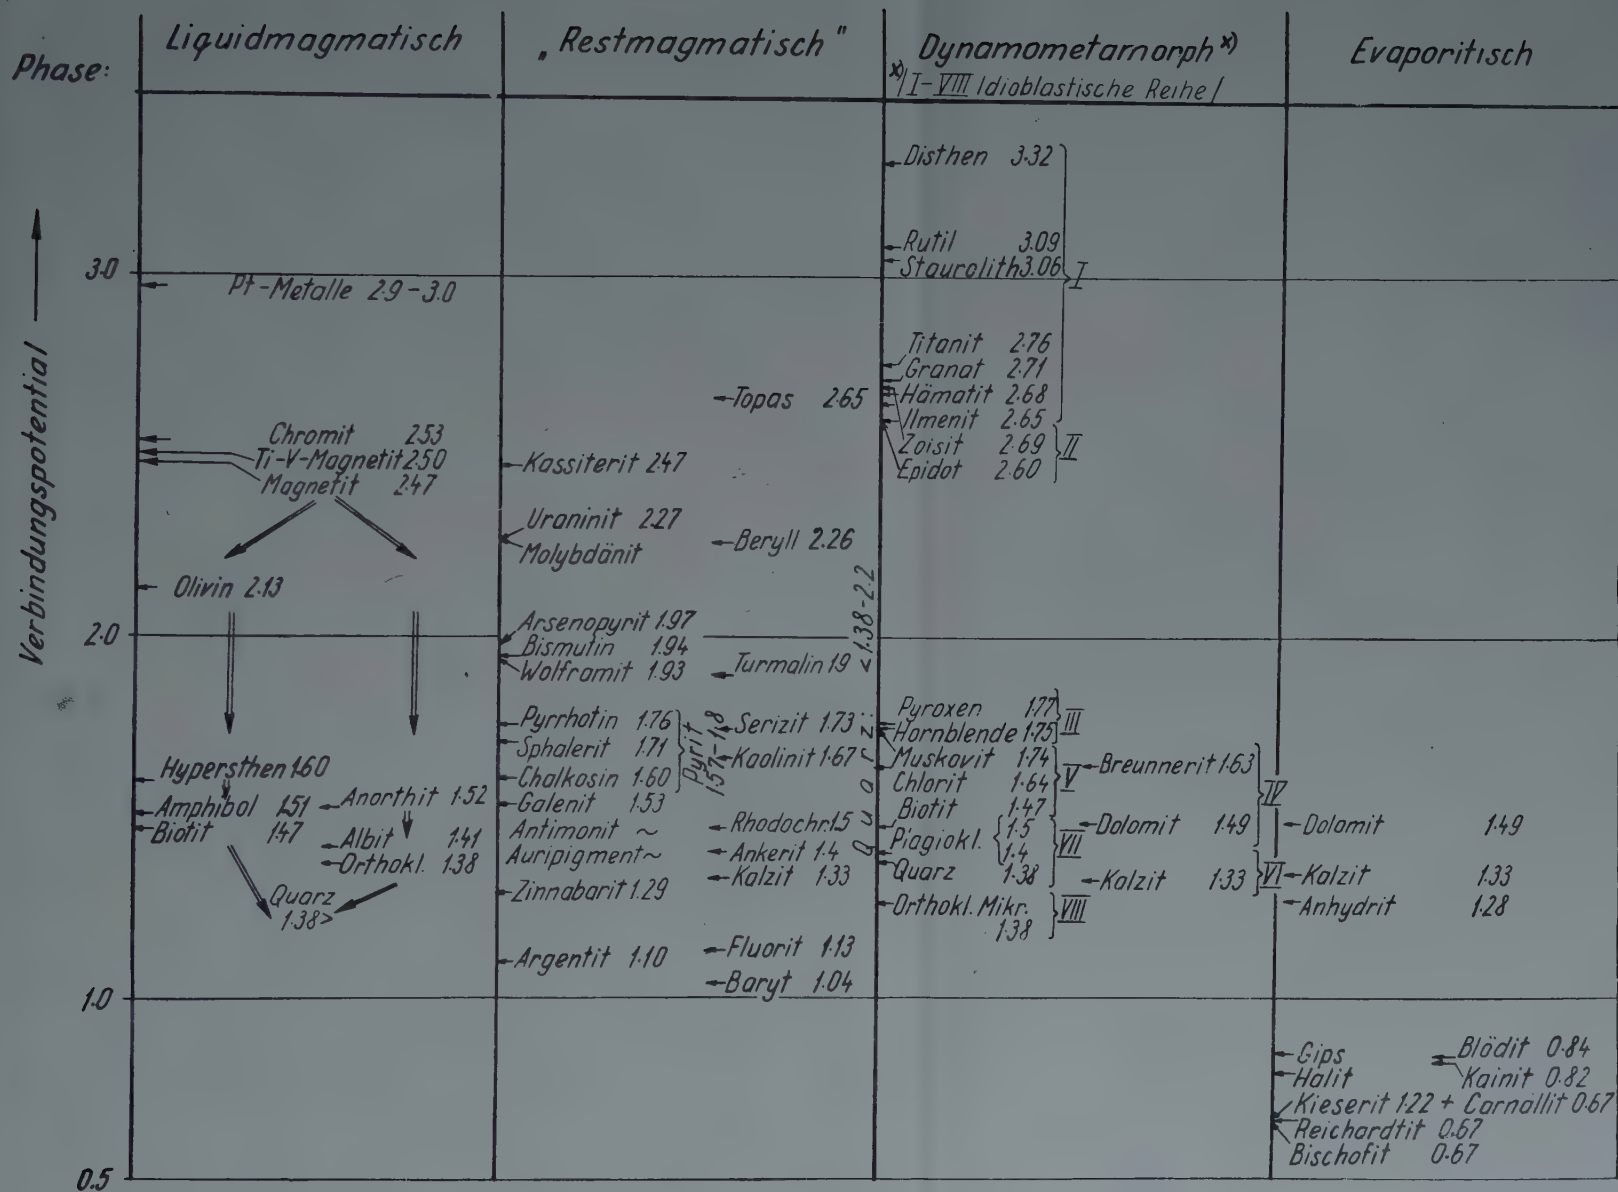 Phase:
Liquidmagmatisch
„Restmagmatisch"
Dynamometamorph x)
x) /I-VIII Idioblastische Reihe/
Evaporitisch
Verbindungspotential
3.0
2.0
1.0
0.5
Pt-Metalle 2.9-3.0
Chromit 2.53
Ti-V-Magnetit 2.50
Magnetit 2.47
Olivin 2.13
Hypersthen 1.60
Amphibol 1.51
Biotit 1.47
Anorthit 1.52
Albit 1.41
Orthokl. 1.38
Quarz
1.38>
Kassiterit 2.47
Uraninit 2.27
Molybdänit
Arsenopyrit 1.97
Bismutin 1.94
Wolframit 1.93
Pyrrhotin 1.76
Sphalerit 1.71
Chalkosin 1.60
Pyrit
1.57-1.8
Galenit 1.53
Antimonit ~
Auripigment ~
Zinnabarit 1.29
Argentit 1.10
Topas 2.65
Beryll 2.26
Turmalin 1.9
Serizit 1.73
Kaolinit 1.67
Rhodochr. 1.5
Ankerit 1.4
Kalzit 1.33
Fluorit 1.13
Baryt 1.04
Quarz: <1.38-2.2
Disthen 3.32
Rutil 3.09
Staurolith 3.06
I
Titanit 2.76
Granat 2.71
Hämatit 2.68
Ilmenit 2.65
Zoisit 2.69
Epidot 2.60
II
Pyroxen 1.77
Hornblende 1.75
III
Muskovit 1.74
Chlorit 1.64
Biotit 1.47
V
Plagiokl. 1.5
1.4
Quarz 1.38
VII
Orthokl. Mikr.
1.38
VIII
Breunnerit 1.63
Dolomit 1.49
IV
Kalzit 1.33
VI
Dolomit 1.49
Kalzit 1.33
Anhydrit 1.28
Gips
Halit
Blödit 0.84
Kainit 0.82
Kieserit 1.22 + Carnallit 0.67
Reichardtit 0.67
Bischofit 0.67